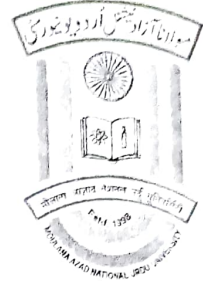 مولانا آزاد نیشنل اُردو یونیورسٹی
मौलाना आज़ाद नेशनल उर्दू यूनिवर्सिटी
Estd 1998
MAULANA AZAD NATIONAL URDU UNIVERSITY